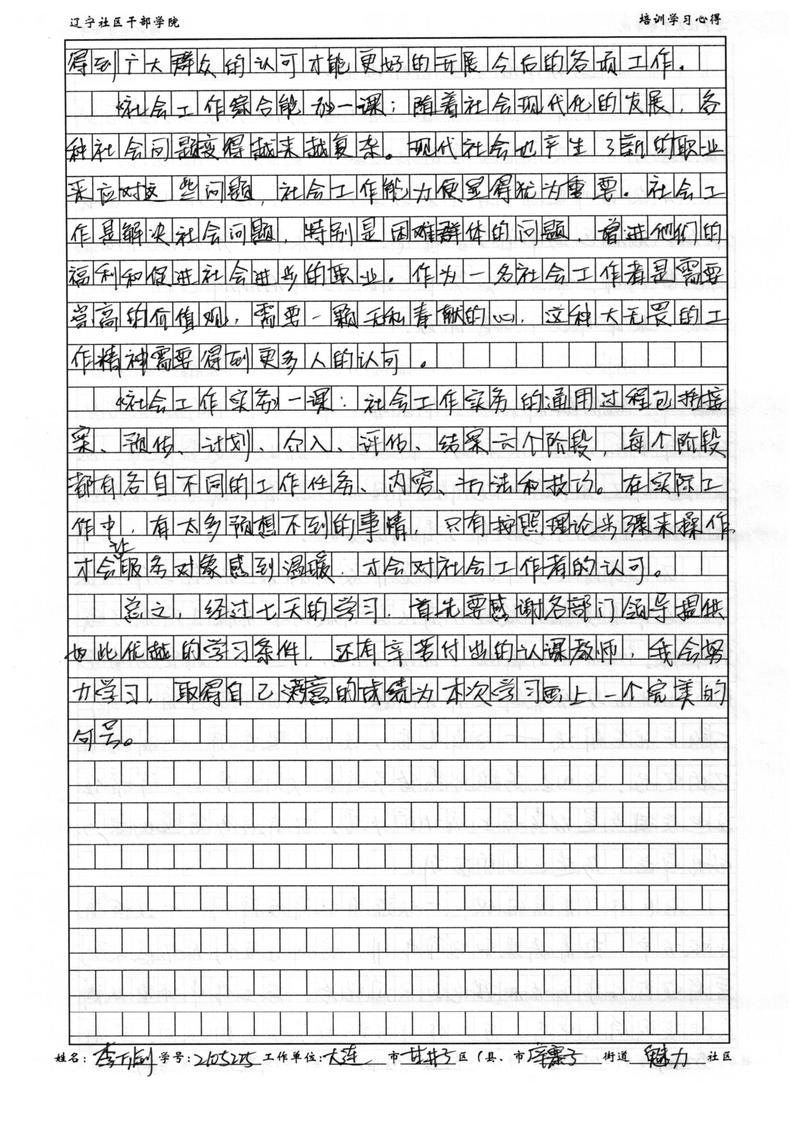 辽宁社区干部学院 培训学习心得
得到广大群众的认可才能更好的开展今后的各项工作。
《社会工作综合能力》一课：随着社会现代化的发展，各
种社会问题变得越来越复杂。现代社会也产生了新的职业
来应对这些问题，社会工作能力便显得犹为重要。社会工
作是解决社会问题，特别是困难群体的问题，增进他们的
福利和促进社会进步的职业。作为一名社会工作者是需要
崇高的价值观，需要一颗无私奉献的心，这种大无畏的工
作精神需要得到更多人的认可。
《社会工作实务》一课：社会工作实务的通用过程包括接
案、预估、计划、介入、评估、结案六个阶段，每个阶段
都有各自不同的工作任务、内容、方法和技巧。在实际工
作中，有太多预想不到的事情，只有按照理论步骤来操作
才会让服务对象感到温暖，才会对社会工作者的认可。
总之，经过七天的学习，首先要感谢各部门领导提供
如此优越的学习条件，还有辛苦付出的认课教师，我会努
力学习，取得自己满意的成绩为本次学习画上一个完美的
句号。
姓名：李 剑 学号：2105225 工作单位：大连 市 甘井子 区（县、市 辛寨子 街道 魅力 社区